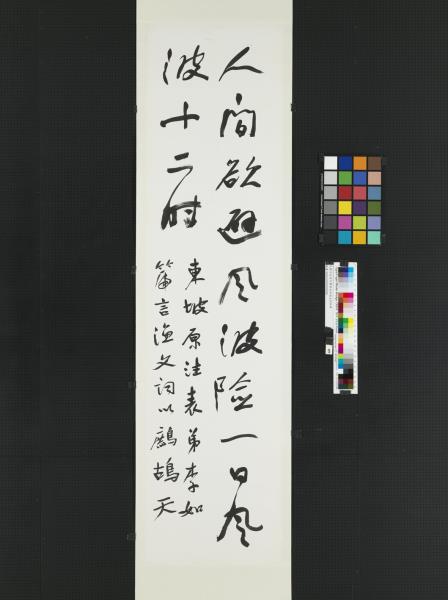 人間欲避风波險一日风
波十二时
東坡原注表弟李如
篪言漁父詞以鷓鴣天